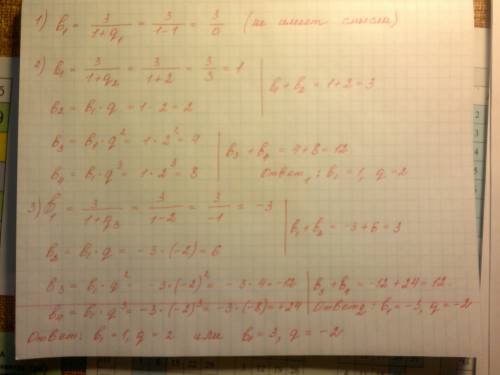 1) b₁ = 3/(1+q₁) = 3/(1-1) = 3/0 (не имеет смысла)
2) b₁ = 3/(1+q₂) = 3/(1+2) = 3/3 = 1
b₁ + b₂ = 1+2 = 3
b₂ = b₁·q = 1·2 = 2
b₃ = b₁·q² = 1·2² = 4
b₃ + b₄ = 4+8 = 12
b₄ = b₁·q³ = 1·2³ = 8
Ответ₁: b₁ = 1, q = 2
3) b₁ = 3/(1+q₃) = 3/(1-2) = 3/-1 = -3
b₁ + b₂ = -3+6 = 3
b₂ = b₁·q = -3·(-2) = 6
b₃ = b₁·q² = -3·(-2)² = -3·4 = -12
b₃ + b₄ = -12+24 = 12
b₄ = b₁·q³ = -3·(-2)³ = -3·(-8) = +24
Ответ₂: b₁ = -3, q = -2
Ответ: b₁ = 1, q = 2 или b₁ = 3, q = -2